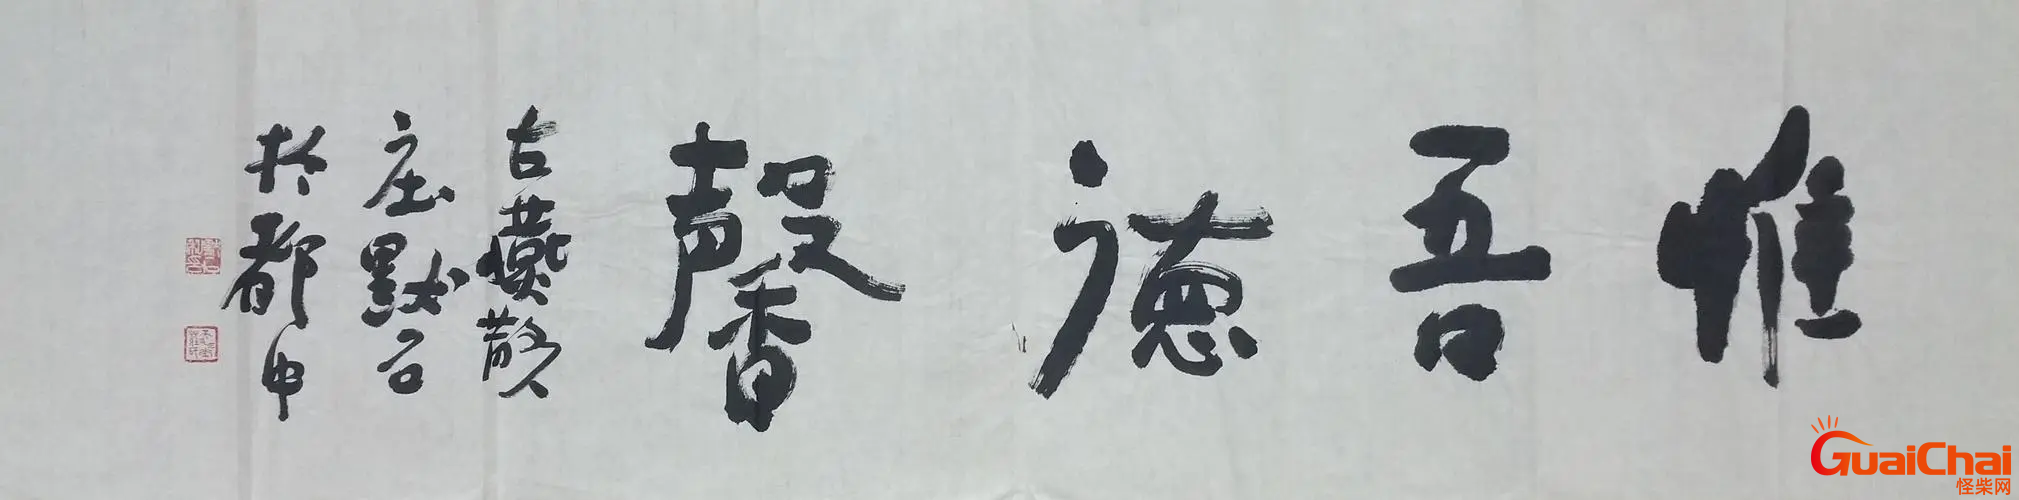 惟吾德馨
古燕散人
庄默石
于都中
GuaiChai
怪柴网